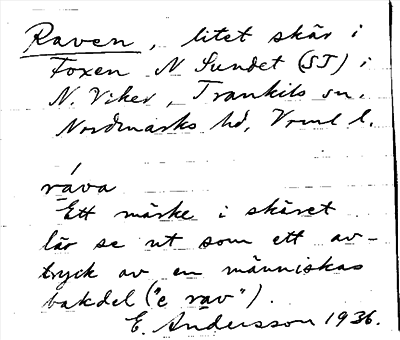 Raven, litet skär i
Foxen N Sundet (ST) i
N. Viker, Trankils sn.
Nordmarks hd, Vrml l.
ráva
Ett märke i skäret
lär se ut som ett av-
tryck av en människas
bakdel ("e rav").
E. Andersson 1936.